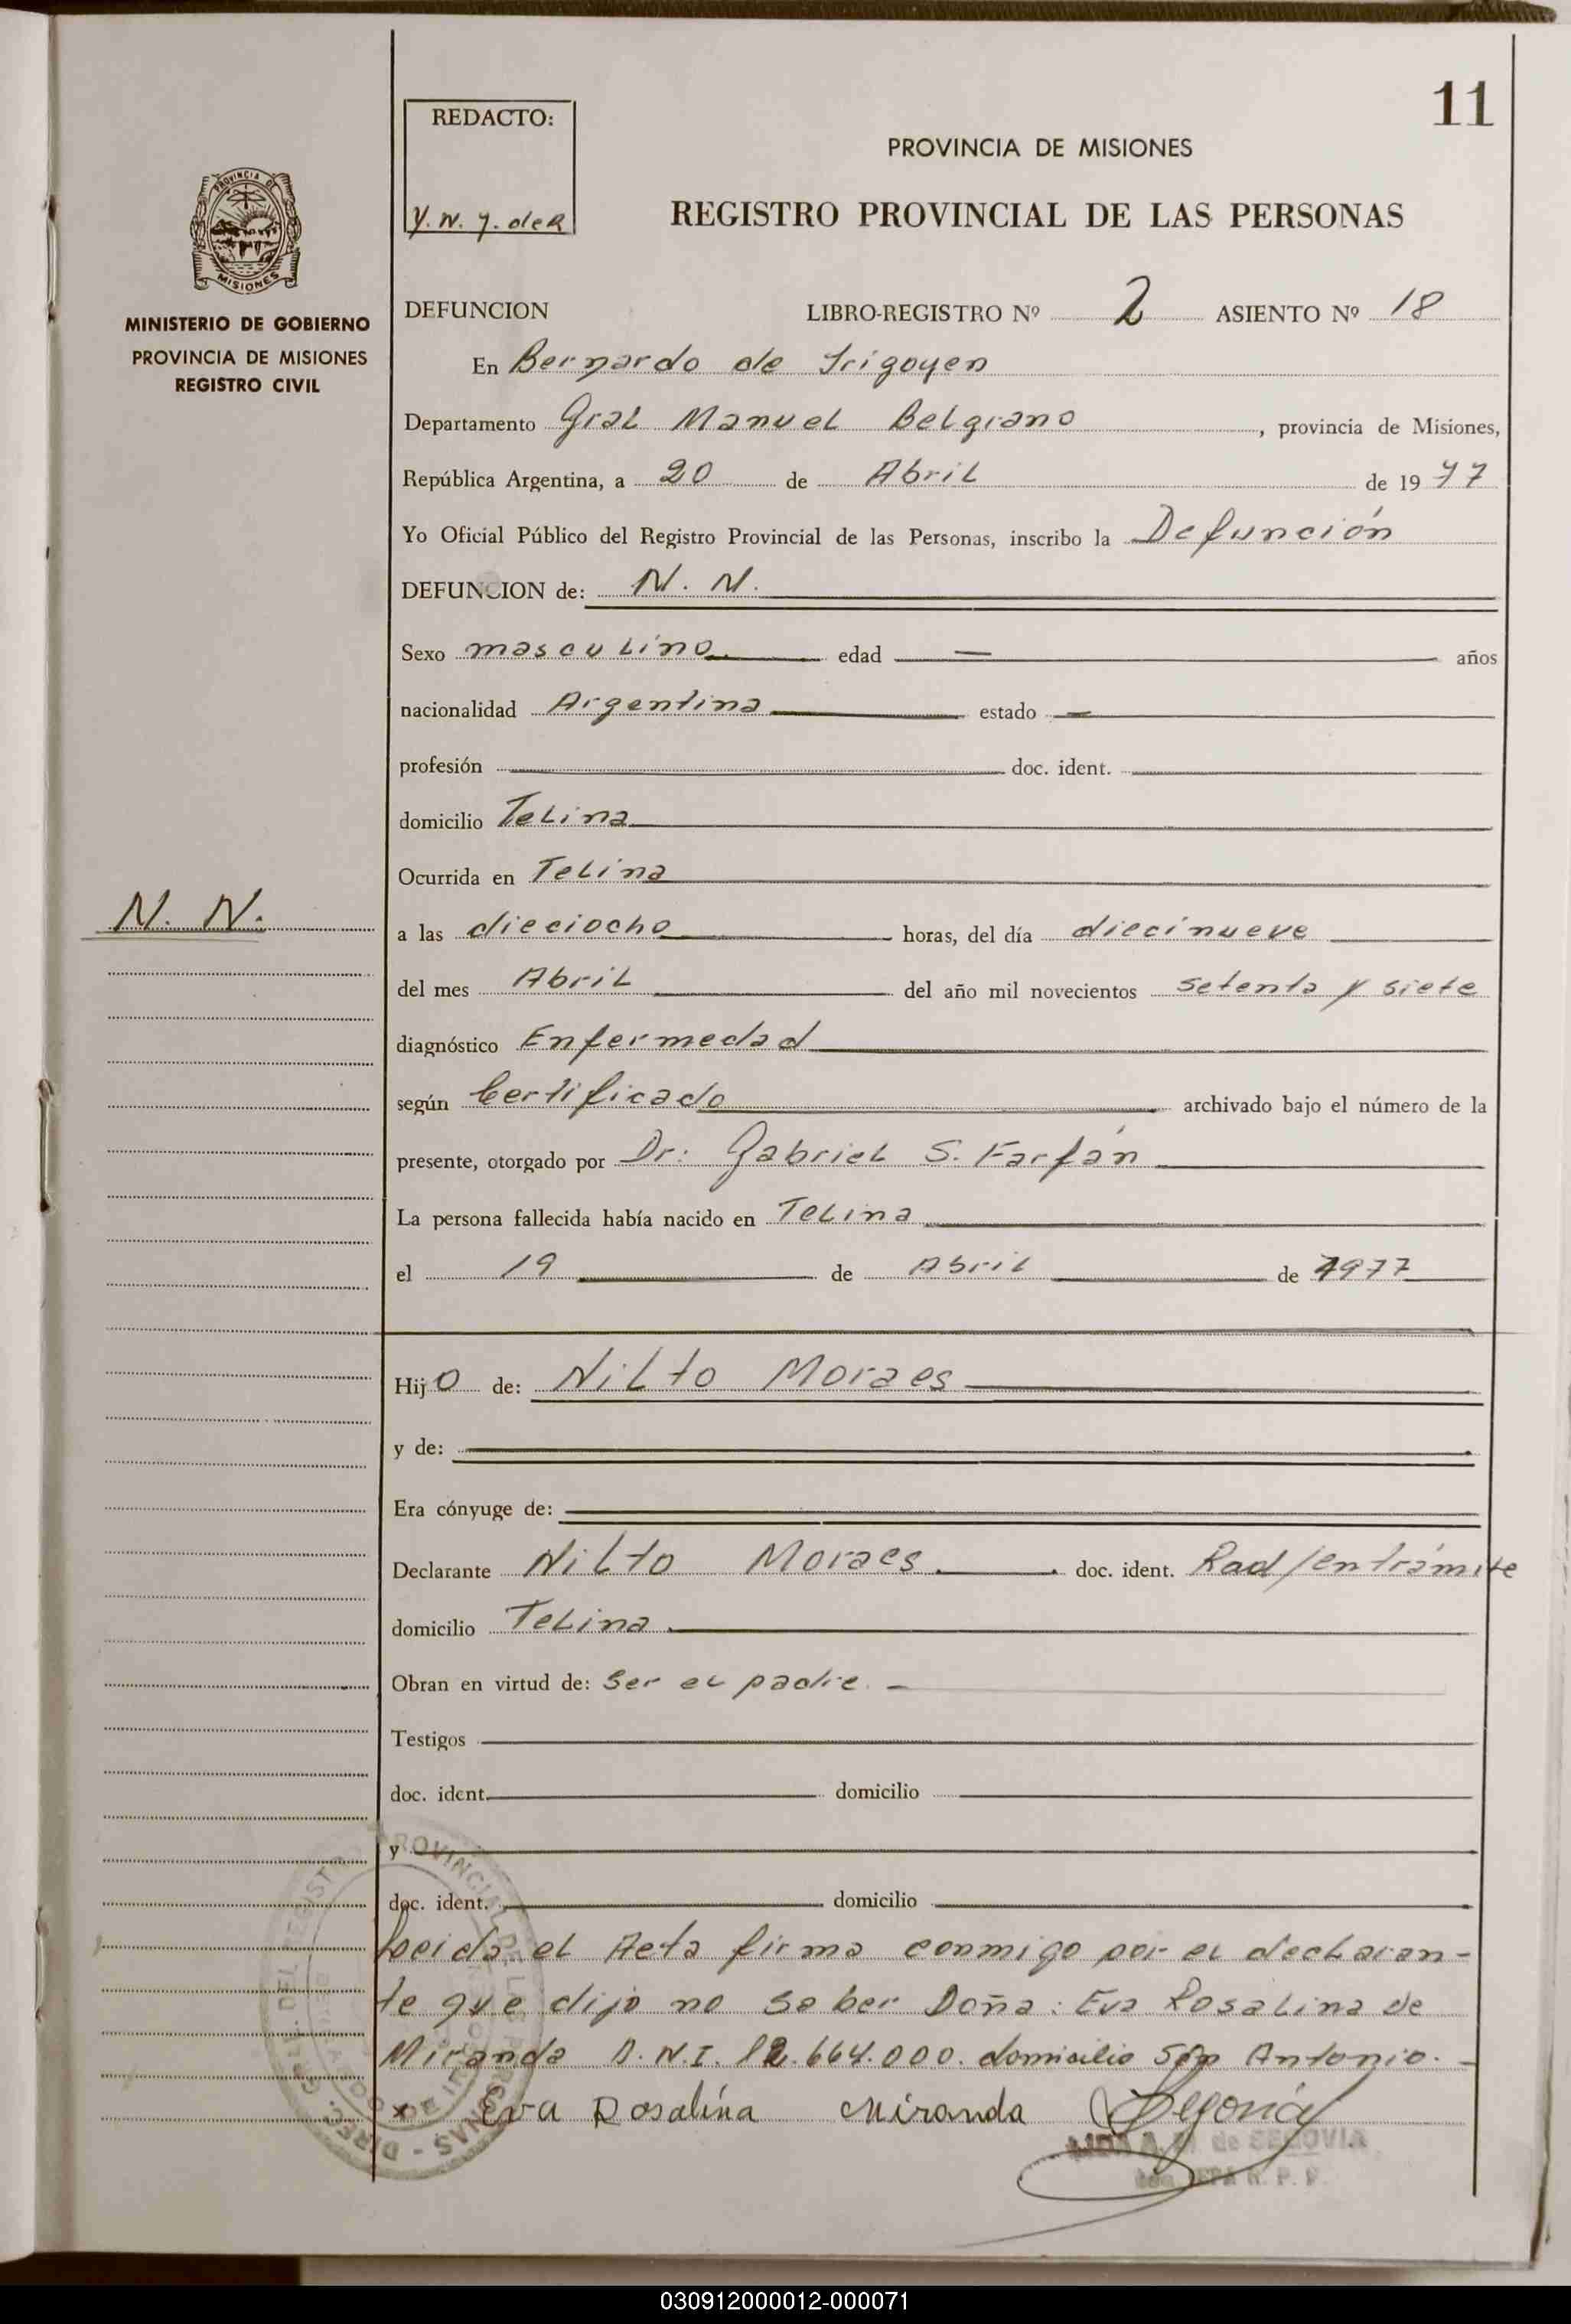 11
REDACTO:
Y. N. Y. de R
PROVINCIA DE MISIONES
REGISTRO PROVINCIAL DE LAS PERSONAS
PROVINCIA DE
MISIONES
MINISTERIO DE GOBIERNO
PROVINCIA DE MISIONES
REGISTRO CIVIL
DEFUNCION LIBRO-REGISTRO Nº 2 ASIENTO Nº 18
En Bernardo de Irigoyen
Departamento Gral Manuel Belgrano, provincia de Misiones,
República Argentina, a 20 de Abril de 1977
Yo Oficial Público del Registro Provincial de las Personas, inscribo la Defunción
DEFUNCION de: N. N.
Sexo masculino edad — años
nacionalidad Argentina estado —
profesión doc. ident.
domicilio Telina
Ocurrida en Telina
N. N.
a las dieciocho horas, del día diecinueve
del mes Abril del año mil novecientos setenta y siete
diagnóstico Enfermedad
según Certificado archivado bajo el número de la
presente, otorgado por Dr: Gabriel S. Farfán
La persona fallecida había nacido en Telina
el 19 de Abril de 1977
Hijo de: Nilto Moraes
y de:
Era cónyuge de:
Declarante Nilto Moraes. doc. ident. Rad/en trámite
domicilio Telina.
Obran en virtud de: Ser el padre. –
Testigos
doc. ident. domicilio
y
doc. ident. domicilio
Leida el Acta firma conmigo por el declaran-
te que dijo no saber Doña: Eva Rosalina de
Miranda D.N.I. 12.664.000. domicilio San Antonio. –
x Eva Rosalína Miranda Segovia
LIDA A. M. de SEGOVIA
R. P. P.
030912000012-000071